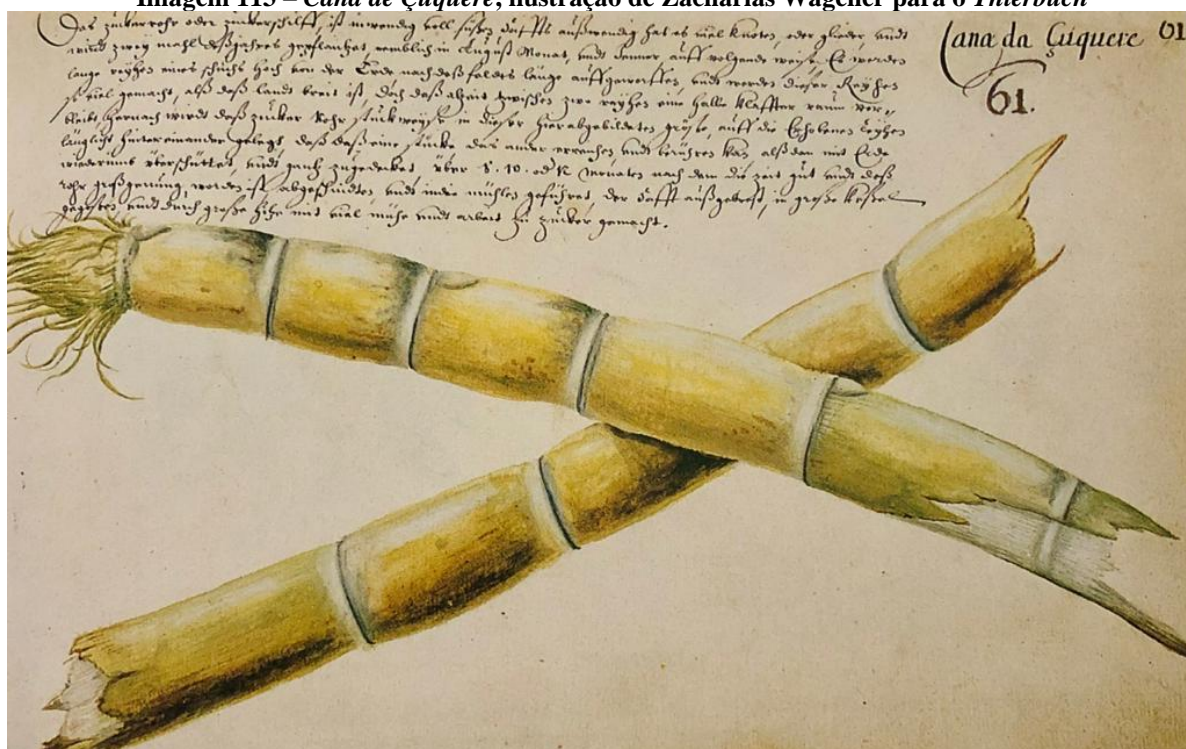 Imagem 113 – Cana de Çuquere, ilustração de Zacharias Wagener para o Thierbuch
Das zuckerrohr oder zuckerschilff, ist inwendig voll süßen saffts außwendig hat es viel knoten, oder glieder, undt
wirdt zwey mahl deß jahres gepflantzet, nemblich in August Monat, undt auff volgende weise. Es werden
lange reyhen eines schuhs hoch von der Erde nach deß feldes länge auffgeworffen, undt werden dieser Reyhen
so viel gemacht, alß daß landt breit ist, doch daß alzeit zwischen zwo reyhen eine halbe klaffter raum ver-
bleibt, hernach wirdt daß zucker Rohr stückweyse in dieser hier abgebildeten größe, auff die Erhobenen Reyhen
länglicht hinter einander gelegt, daß daß eine stücke das ander erreichen undt berühren kan, alßdan mit Erde
wiederumb uberschüttet, undt gantz zugedecket, uber 8. 10. od 12 Monaten nach dem die zeit gut undt daß
rohr groß genung, worden ist, abgeschnidten undt in die mühlen geführet, der safft außgepreßt, in große Kessel
gegossen, undt durch große hitze mit viel mühe undt arbeit zu zucker gemacht.
Cana da Çuquere 61
61.